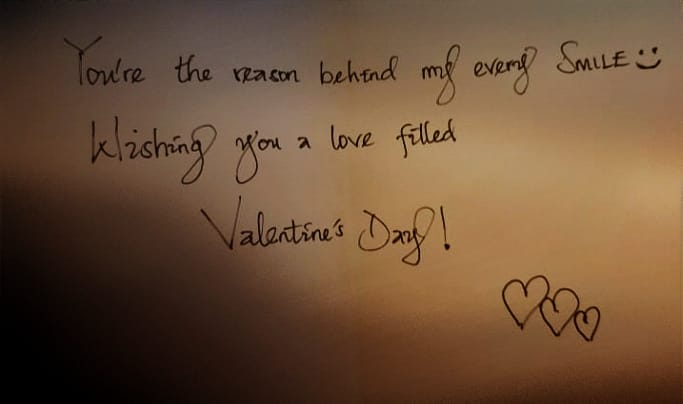 You're the reason behind my every SMILE :)
Wishing you a love filled
Valentine's Day!